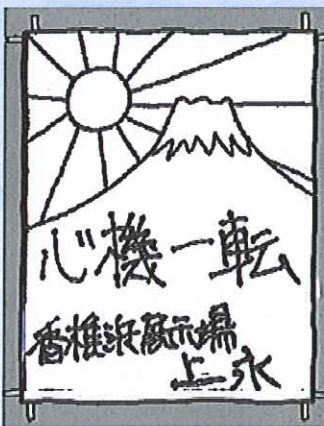 心機一転
香椎浜展示場
上永